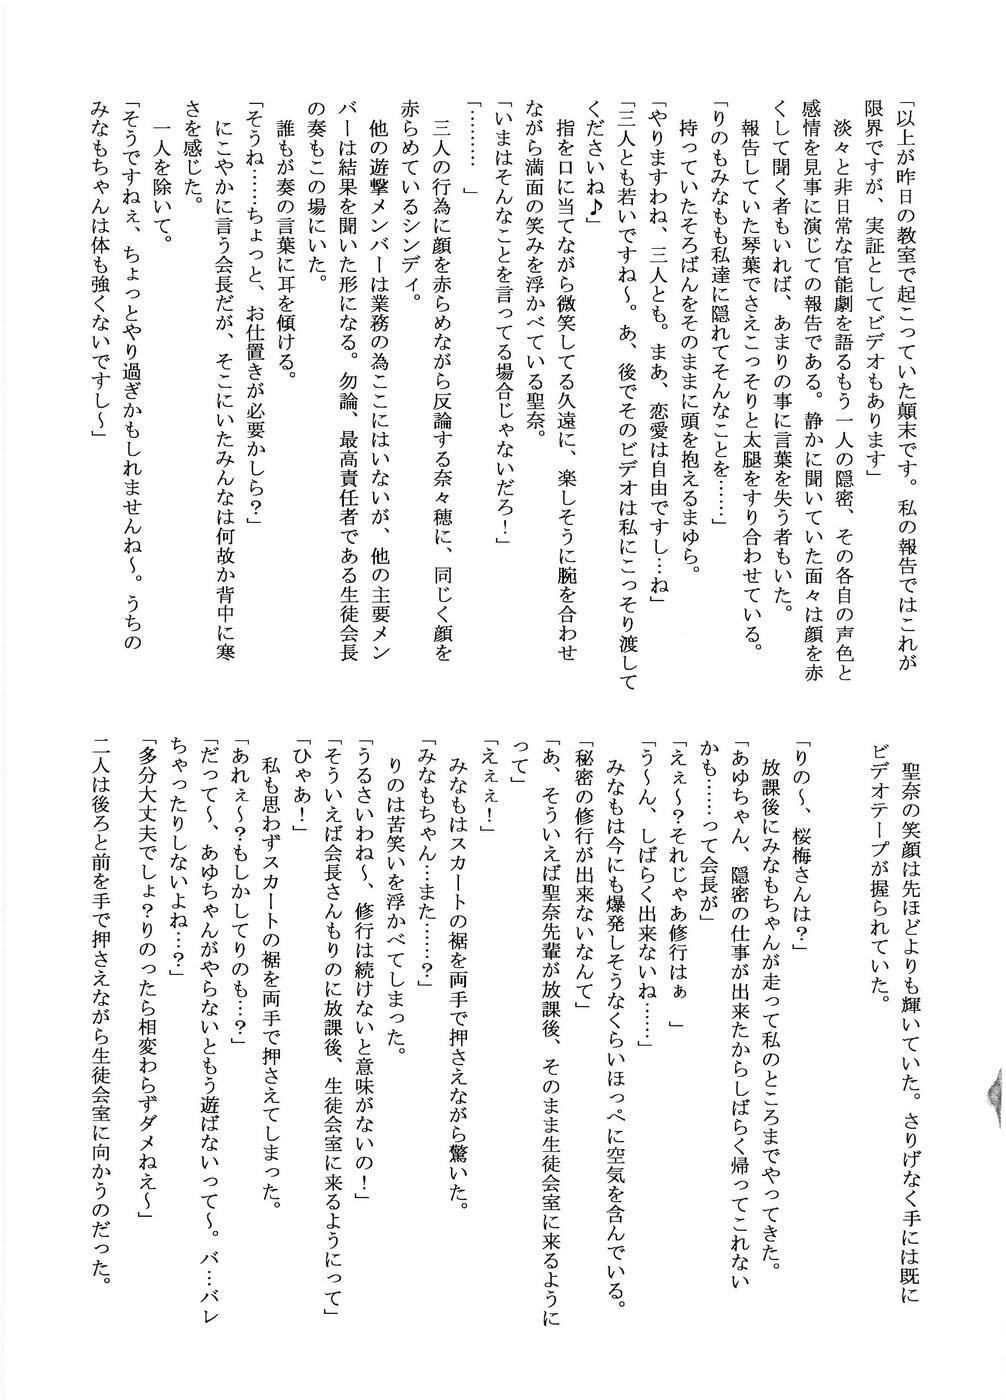 「以上が昨日の教室で起こっていた顛末です。私の報告ではこれが
限界ですが、実証としてビデオもあります」
　淡々と非日常な官能劇を語るもう一人の隠密、その各自の声色と
感情を見事に演じての報告である。静かに聞いていた面々は顔を赤
くして聞く者もいれば、あまりの事に言葉を失う者もいた。
　報告していた琴葉でさえこっそりと太腿をすり合わせている。
「りのもみなもも私達に隠れてそんなことを……」
　持っていたそろばんをそのままに頭を抱えるまゆら。
「やりますわね、三人とも。まあ、恋愛は自由ですし…ね」
「三人とも若いですね～。あ、後でそのビデオは私にこっそり渡して
くださいね♪」
　指を口に当てながら微笑してる久遠に、楽しそうに腕を合わせ
ながら満面の笑みを浮かべている聖奈。
「いまはそんなことを言ってる場合じゃないだろ！」
「………　」
　三人の行為に顔を赤らめながら反論する奈々穂に、同じく顔を
赤らめているシンディ。
　他の遊撃メンバーは業務の為ここにはいないが、他の主要メン
バーは結果を聞いた形になる。勿論、最高責任者である生徒会長
の奏もこの場にいた。
　誰もが奏の言葉に耳を傾ける。
「そうね……ちょっと、お仕置きが必要かしら？」
　にこやかに言う会長だが、そこにいたみんなは何故か背中に寒
さを感じた。
　一人を除いて。
「そうですねぇ、ちょっとやり過ぎかもしれませんね～。うちの
みなもちゃんは体も強くないですし～」
　聖奈の笑顔は先ほどよりも輝いていた。さりげなく手には既に
ビデオテープが握られていた。
「りの～、桜梅さんは？」
　放課後にみなもちゃんが走って私のところまでやってきた。
「あゆちゃん、隠密の仕事が出来たからしばらく帰ってこれない
かも……って会長が」
「えぇ～？それじゃあ修行はぁ　」
「う～ん、しばらく出来ないね……」
　みなもは今にも爆発しそうなくらいほっぺに空気を含んでいる。
「秘密の修行が出来ないなんて」
「あ、そういえば聖奈先輩が放課後、そのまま生徒会室に来るように
って」
「えぇぇ！」
　みなもはスカートの裾を両手で押さえながら驚いた。
「みなもちゃん…また……？」
　りのは苦笑いを浮かべてしまった。
「うるさいわね～、修行は続けないと意味がないの！」
「そういえば会長さんもりのに放課後、生徒会室に来るようにって」
「ひゃあ！」
　私も思わずスカートの裾を両手で押さえてしまった。
「あれぇ～？もしかしてりのも…？」
「だって～、あゆちゃんがやらないともう遊ばないって～。バ…バレ
ちゃったりしないよね…？」
「多分大丈夫でしょ？りのったら相変わらずダメねえ～」
二人は後ろと前を手で押さえながら生徒会室に向かうのだった。